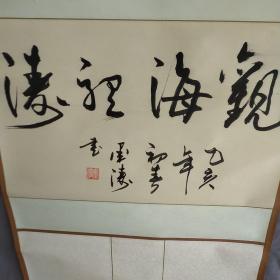 觀海聽濤
乙亥
年
初春
墨濤
書